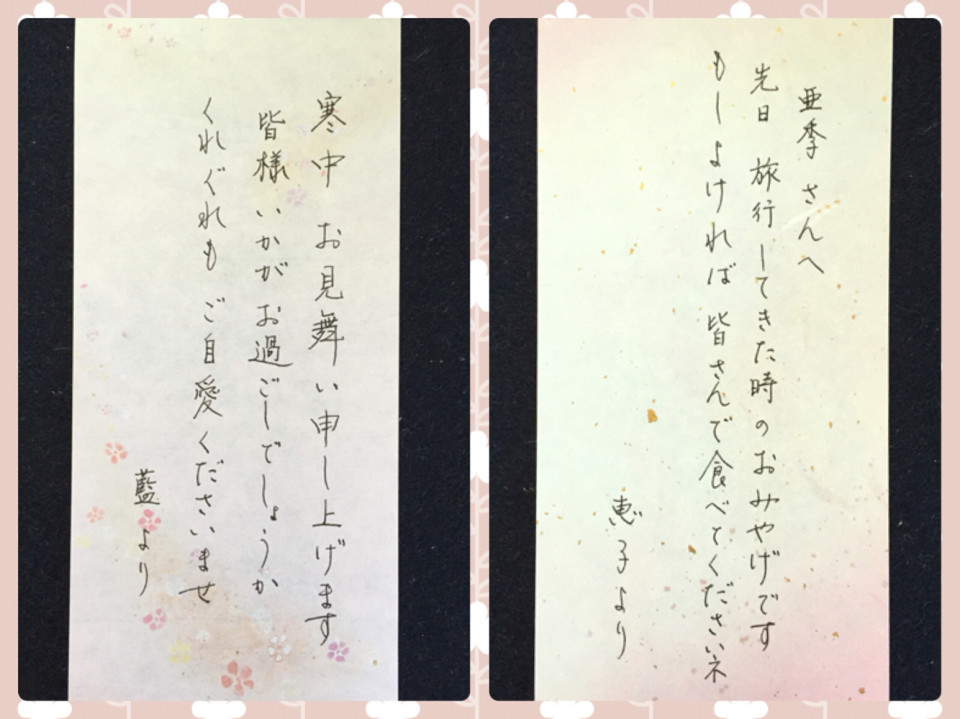 寒中 お見舞い申し上げます
皆様いかがお過ごしでしょうか
くれぐれも ご自愛くださいませ
藍より
亜季さんへ
先日 旅行してきた時のおみやげです
もしよければ 皆さんで食べてくださいネ
恵子より